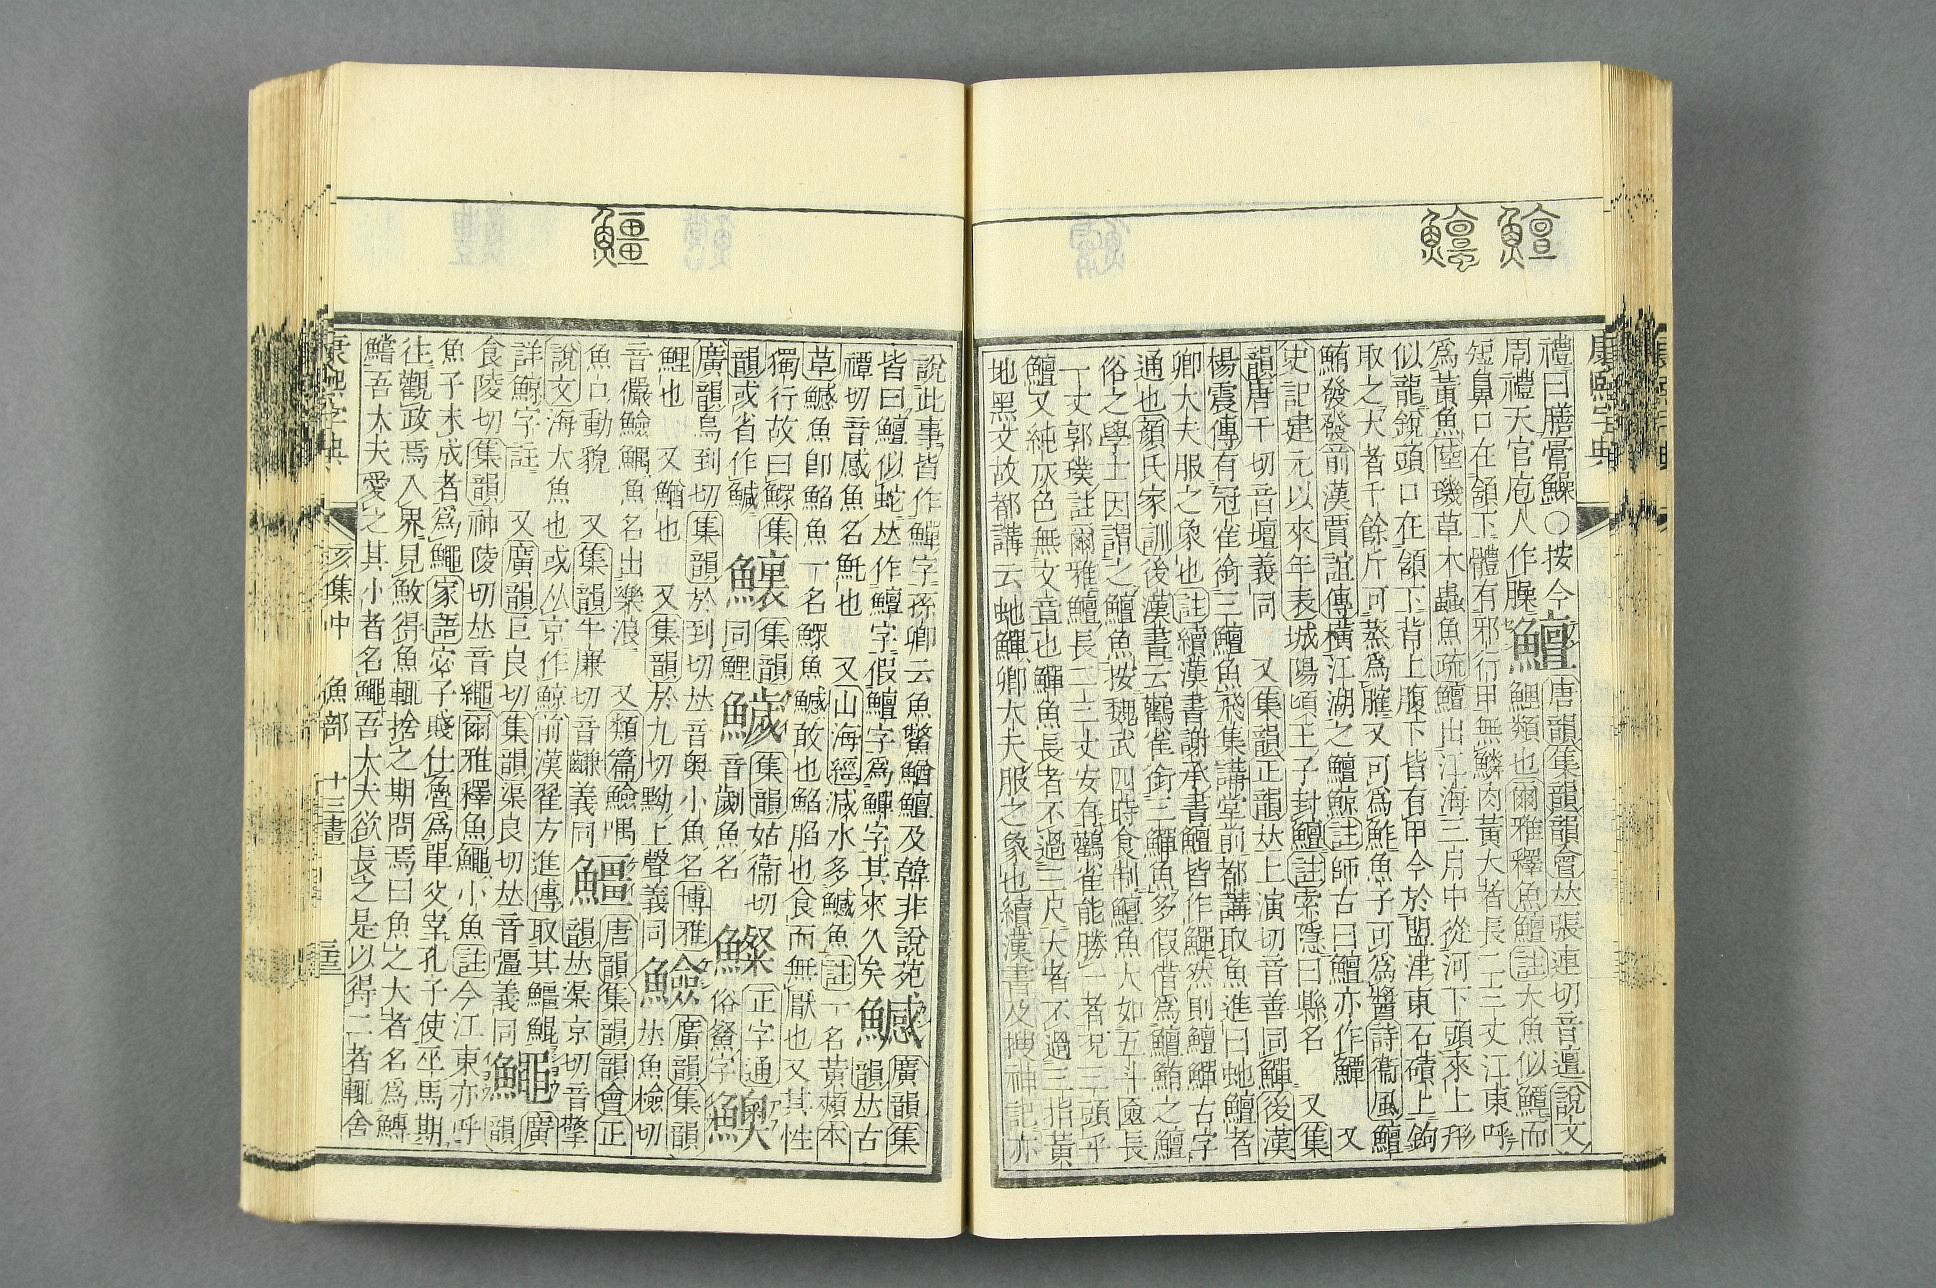 康熙字典
鱣
鱣
禮曰膳膏鱢○按今鱣唐韻集韻韻會𠀤張連切音邅說文
周禮天官庖人作臊鯉類也爾雅釋魚鱣註大魚似鱏而
短鼻口在頷下體有邪行甲無鱗肉黃大者長二三丈江東呼
爲黃魚陸璣草木蟲魚疏鱣出江海三月中從河下頭來上形
似龍銳頭口在頷下背上腹下皆有甲今於盟津東石磧上鉤
取之大者千餘斤可蒸爲臛又可爲鮓魚子可爲醬詩衞風鱣
鮪發發前漢賈誼傳橫江湖之鱣鯨註師古曰鱣亦作鱓 又
史記建元以來年表城陽頃王子封鱣註索隱曰縣名 又集
韻唐干切音壇義同 又集韻正韻𠀤上演切音善同鱓後漢
楊震傳有冠雀銜三鱣魚飛集講堂前都講取魚進曰虵鱣者
卿大夫服之象也註續漢書謝承書鱣皆作鱓然則鱣鱓古字
通也顏氏家訓後漢書云鸛雀銜三鱓魚多假借爲鱣鮪之鱣
俗之學士因謂之鱣魚按魏武四時食制鱣魚大如五斗奩長
一丈郭璞註爾雅鱣長二三丈安有鸛雀能勝一者況三頭乎
鱣又純灰色無文章也鱓魚長者不過三尺大者不過三指黃
地黑文故都講云虵鱓卿大夫服之象也續漢書及搜神記亦
鱷
說此事皆作鱓字孫卿云魚鱉鰌鱣及韓非說苑鱤廣韻集
皆曰鱣似蛇𠀤作鱣字假鱣字爲鱓字其來久矣韻𠀤古
禫切音感魚名魠也 又山海經減水多鱤魚註一名黃頰本
草鱤魚卽䱤魚一名鰥魚鱤敢也䱤䐄也食而無厭也又其性
獨行故曰鰥集韻集韻姑衞切正字通
韻或省作鰔同鯉鱥音劌魚名俗鮝字
廣韻烏到切集韻於到切𠀤音奧小魚名博雅廣韻集韻
鯉也 又鰌也 又集韻於九切黝上聲義同𠀤魚檢切
音儼鰃魚名出樂浪 又類篇喁唐韻集韻韻會正
魚口動貌 又集韻牛廉切音義同韻𠀤渠京切音擎
說文海大魚也或从京作鯨前漢翟方進傳取其鱷鯢
詳鯨字註 又廣韻巨良切集韻渠良切𠀤音彊義同鱦廣韻
食陵切集韻神陵切𠀤音繩爾雅釋魚鱦小魚註今江東亦呼
魚子未成者爲鱦家語宓子賤仕魯爲單父宰孔子使巫馬期
往觀政焉入界見敂得魚輒捨之期問焉曰魚之大者名爲鱄
吾大夫愛之其小者名鱦吾大夫欲長之是以得二者輒舍
康熙字典 亥集中 魚部 十三畫